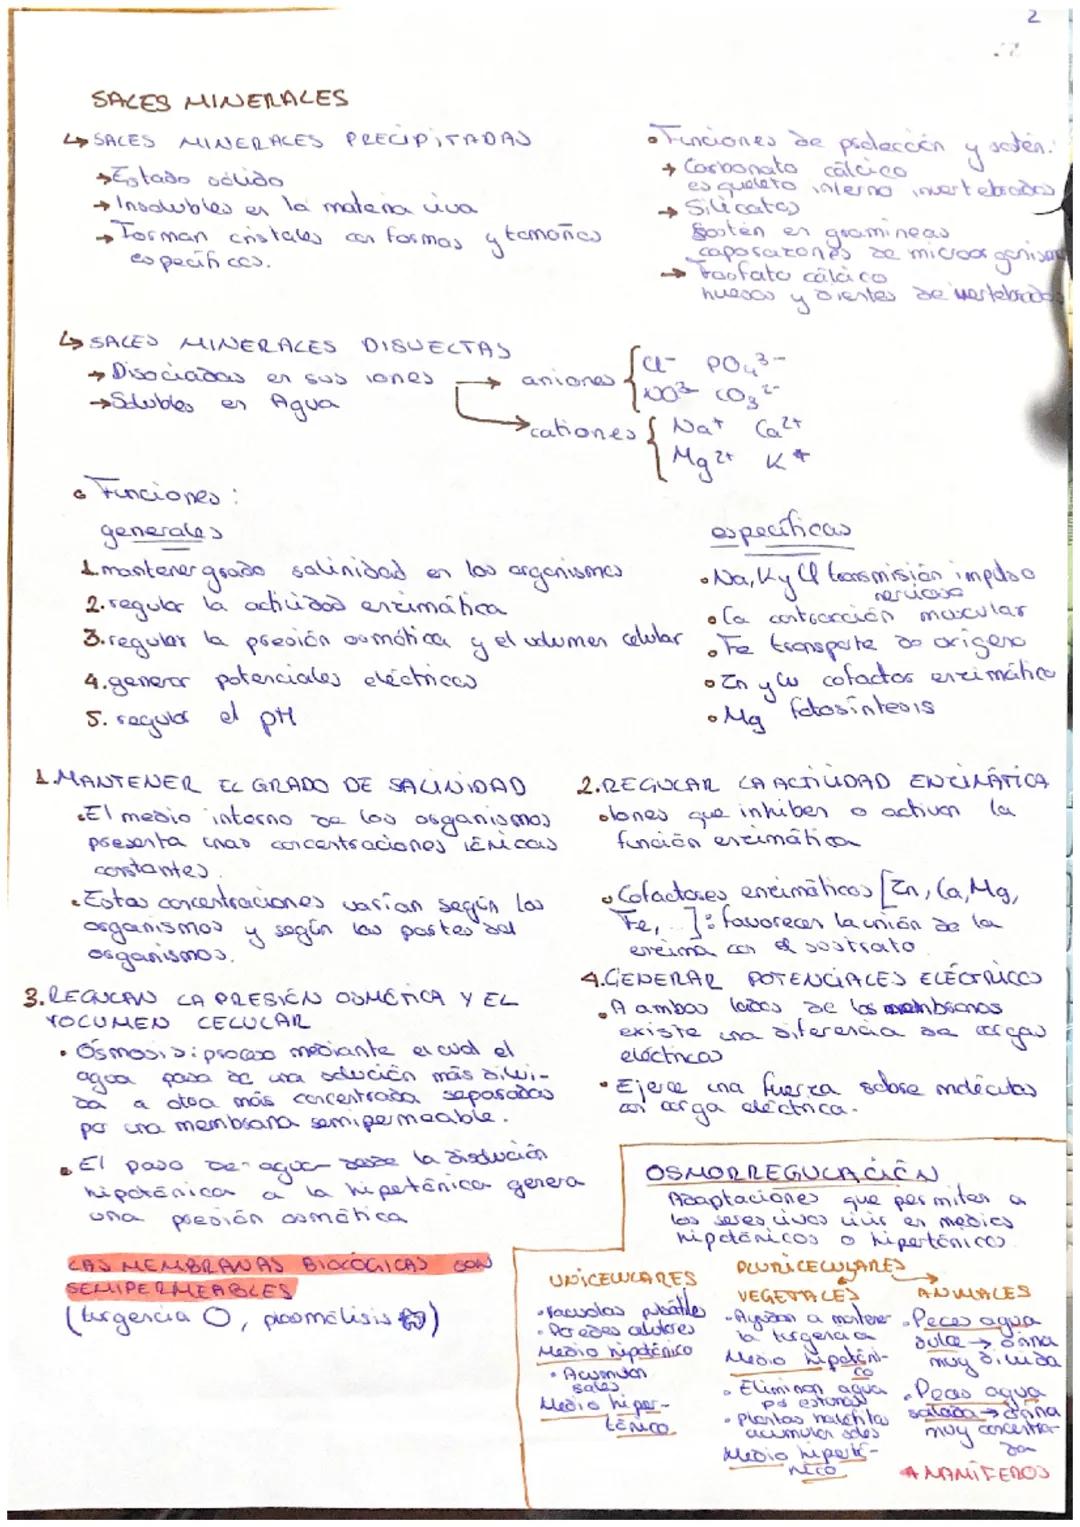 2
SALES MINERALES
↳ SALES MINERALES PRECIPITADAS
→ Estado sólido
→ Insolubles en la materia viva
→ Forman cristales con formas y tamaños
específicos.
• Funciones de protección y sostén:
→ Carbonato cálcico
esqueleto interno invertebrados
→ Silicatos
Sostén en gramineas
caparazones de microorganismos
→ Fosfato cálcico
huesos y dientes de vertebrados
↳ SALES MINERALES DISUELTAS
→ Disociadas en sus iones
→ Solubles en Agua
→ aniones { Cl⁻ PO₄³⁻
NO³⁻ CO₃²⁻
→ cationes { Na⁺ Ca²⁺
Mg²⁺ K⁺
• Funciones:
generales
1. mantener grado salinidad en los organismos
2. regular la actividad enzimática
3. regular la presión osmótica y el volumen celular
4. generar potenciales eléctricos
5. regular el pH
específicas
• Na, K y Cl transmisión impulso
nervioso
• Ca contracción muscular
• Fe transporte de oxígeno
• Zn y Cu cofactor enzimático
• Mg fotosíntesis
1. MANTENER EL GRADO DE SALINIDAD
• El medio interno de los organismos
presenta unas concentraciones iónicas
constantes.
• Estas concentraciones varían según los
organismos y según las partes del
organismos.
2. REGULAR LA ACTIVIDAD ENZIMÁTICA
• Iones que inhiben o activan la
función enzimática
• Cofactores enzimáticos [Zn, Ca, Mg,
Fe, ...]: favorecen la unión de la
enzima con el sustrato
3. REGULAN LA PRESIÓN OSMÓTICA Y EL
VOLUMEN CELULAR
• Osmosis: proceso mediante el cual el
agua pasa de una solución más dilui-
da a otra más concentrada separadas
por una membrana semipermeable.
• El paso de agua desde la disolución
hipotónica a la hipertónica genera
una presión osmótica
LAS MEMBRANAS BIOLÓGICAS SON
SEMIPERMEABLES
(turgencia O, plasmólisis)
4. GENERAR POTENCIALES ELÉCTRICOS
• A ambos lados de las membranas
existe una diferencia de cargas
eléctricas
• Ejerce una fuerza sobre moléculas
con carga eléctrica.
OSMORREGULACIÓN
Adaptaciones que permiten a
los seres vivos vivir en medios
hipotónicos o hipertónicos
UNICELULARES
• Vacuolas pulsátiles
• Paredes celulares
Medio hipotónico
• Acumulan
sales
Medio hiper-
tónico
PLURICELULARES
VEGETALES
• Ayudan a mantener
la turgencia
Medio hipotóni-
co
• Eliminan agua
por estomas
• Plantas halófitas
acumulan sales
Medio hipertó-
nico
ANIMALES
• Peces agua
dulce → orina
muy diluida
• Peces agua
salada → orina
muy concentra-
da
MAMÍFEROS